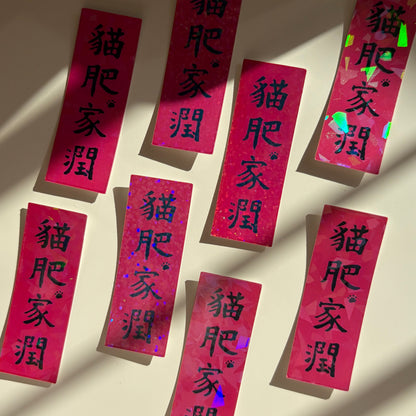 貓肥家潤
貓肥家潤
貓肥家潤
貓肥家潤
貓肥家潤
貓肥家潤
貓肥家潤
貓肥家潤